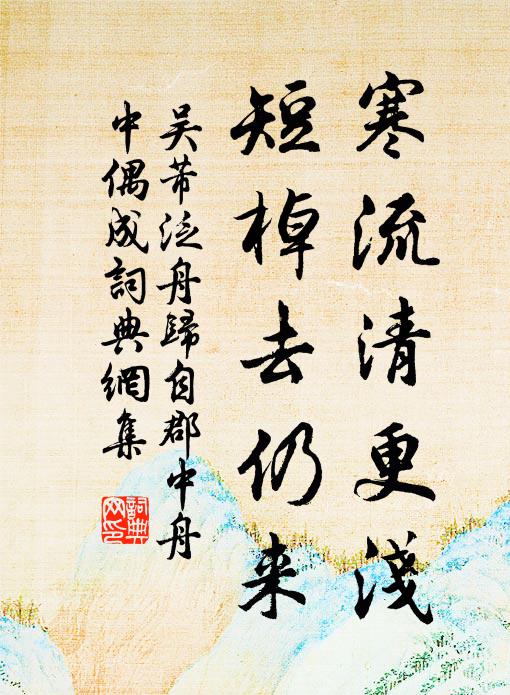 寒流清更淺
短棹去仍来
吴芾泛舟歸自郡中舟
中偶成詞典網集
詞典
网印